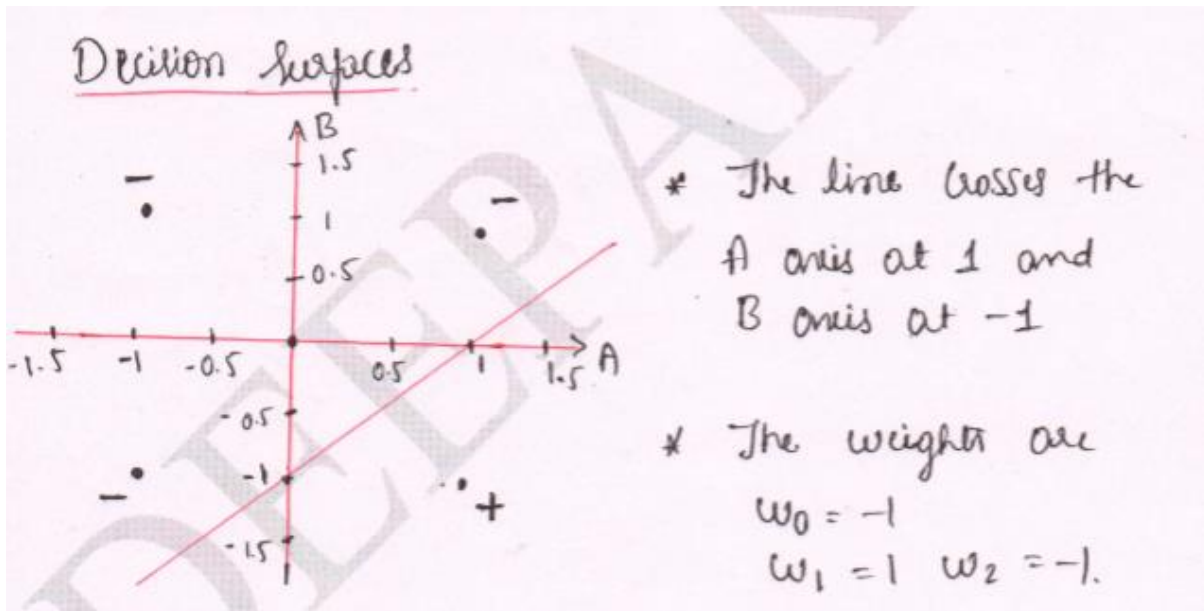 Decision Surfaces
B
1.5
-
-
1
0.5
-1.5 -1 -0.5 0.5 1 1.5 A
-0.5
-1
-
+
-1.5
* The line crosses the
A axis at 1 and
B axis at -1
* The weights are
w0 = -1
w1 = 1 w2 = -1.
DEEPA